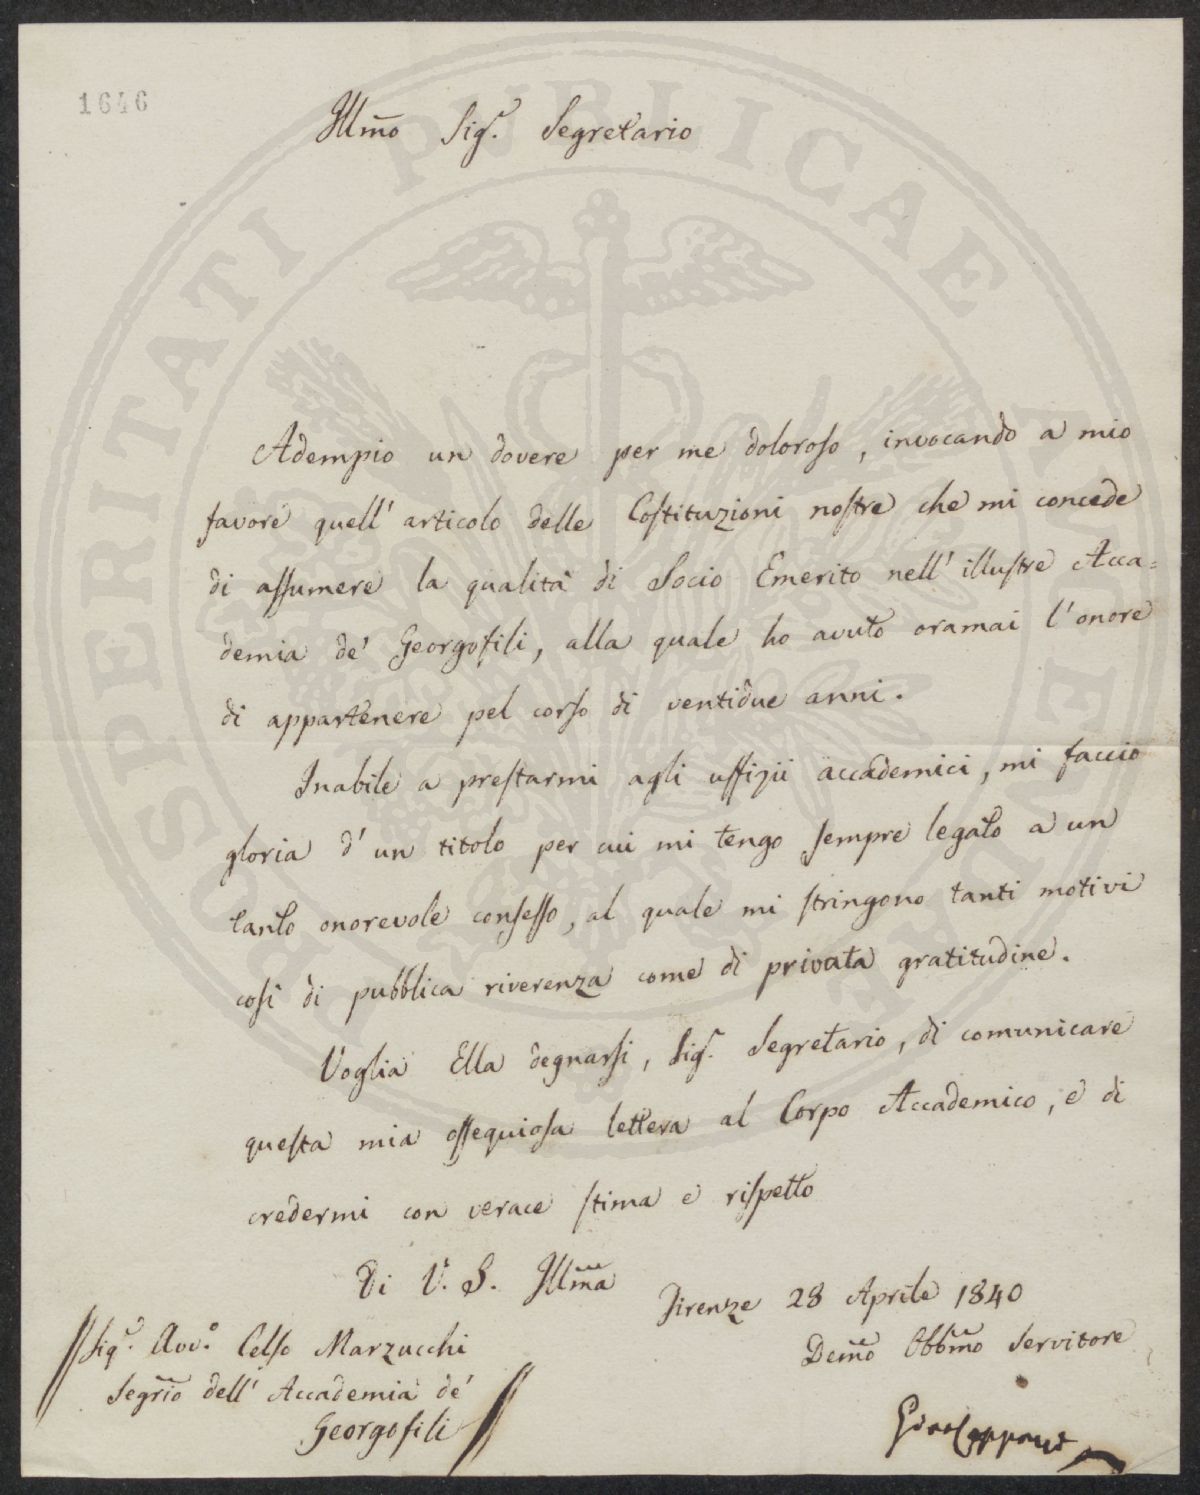 1646
Illmo Sigr. Segretario
Adempio un dovere per me doloroso, invocando a mio
favore quell' articolo delle Costituzioni nostre che mi concede
di assumere la qualità di Socio Emerito nell' illustre Acca=
demia de' Georgofili, alla quale ho avuto oramai l' onore
di appartenere pel corso di ventidue anni.
Inabile a prestarmi agli uffizii accademici, mi faccio
gloria d' un titolo per cui mi tengo sempre legato a un
tanto onorevole consesso, al quale mi stringono tanti motivi
così di pubblica riverenza come di privata gratitudine.
Voglia Ella degnarsi, Sigr. Segretario, di comunicare
questa mia ossequiosa lettera al Corpo Accademico, e di
credermi con verace stima e rispetto
Di V. S. Illma
Firenze 28 Aprile 1840
Demo Obbmo Servitore
Gino Capponi
Sigr. Avvo. Celso Marzucchi
Segrio dell' Accademia de'
Georgofili
PROSPERITATI PUBLICAE AUGENDAE